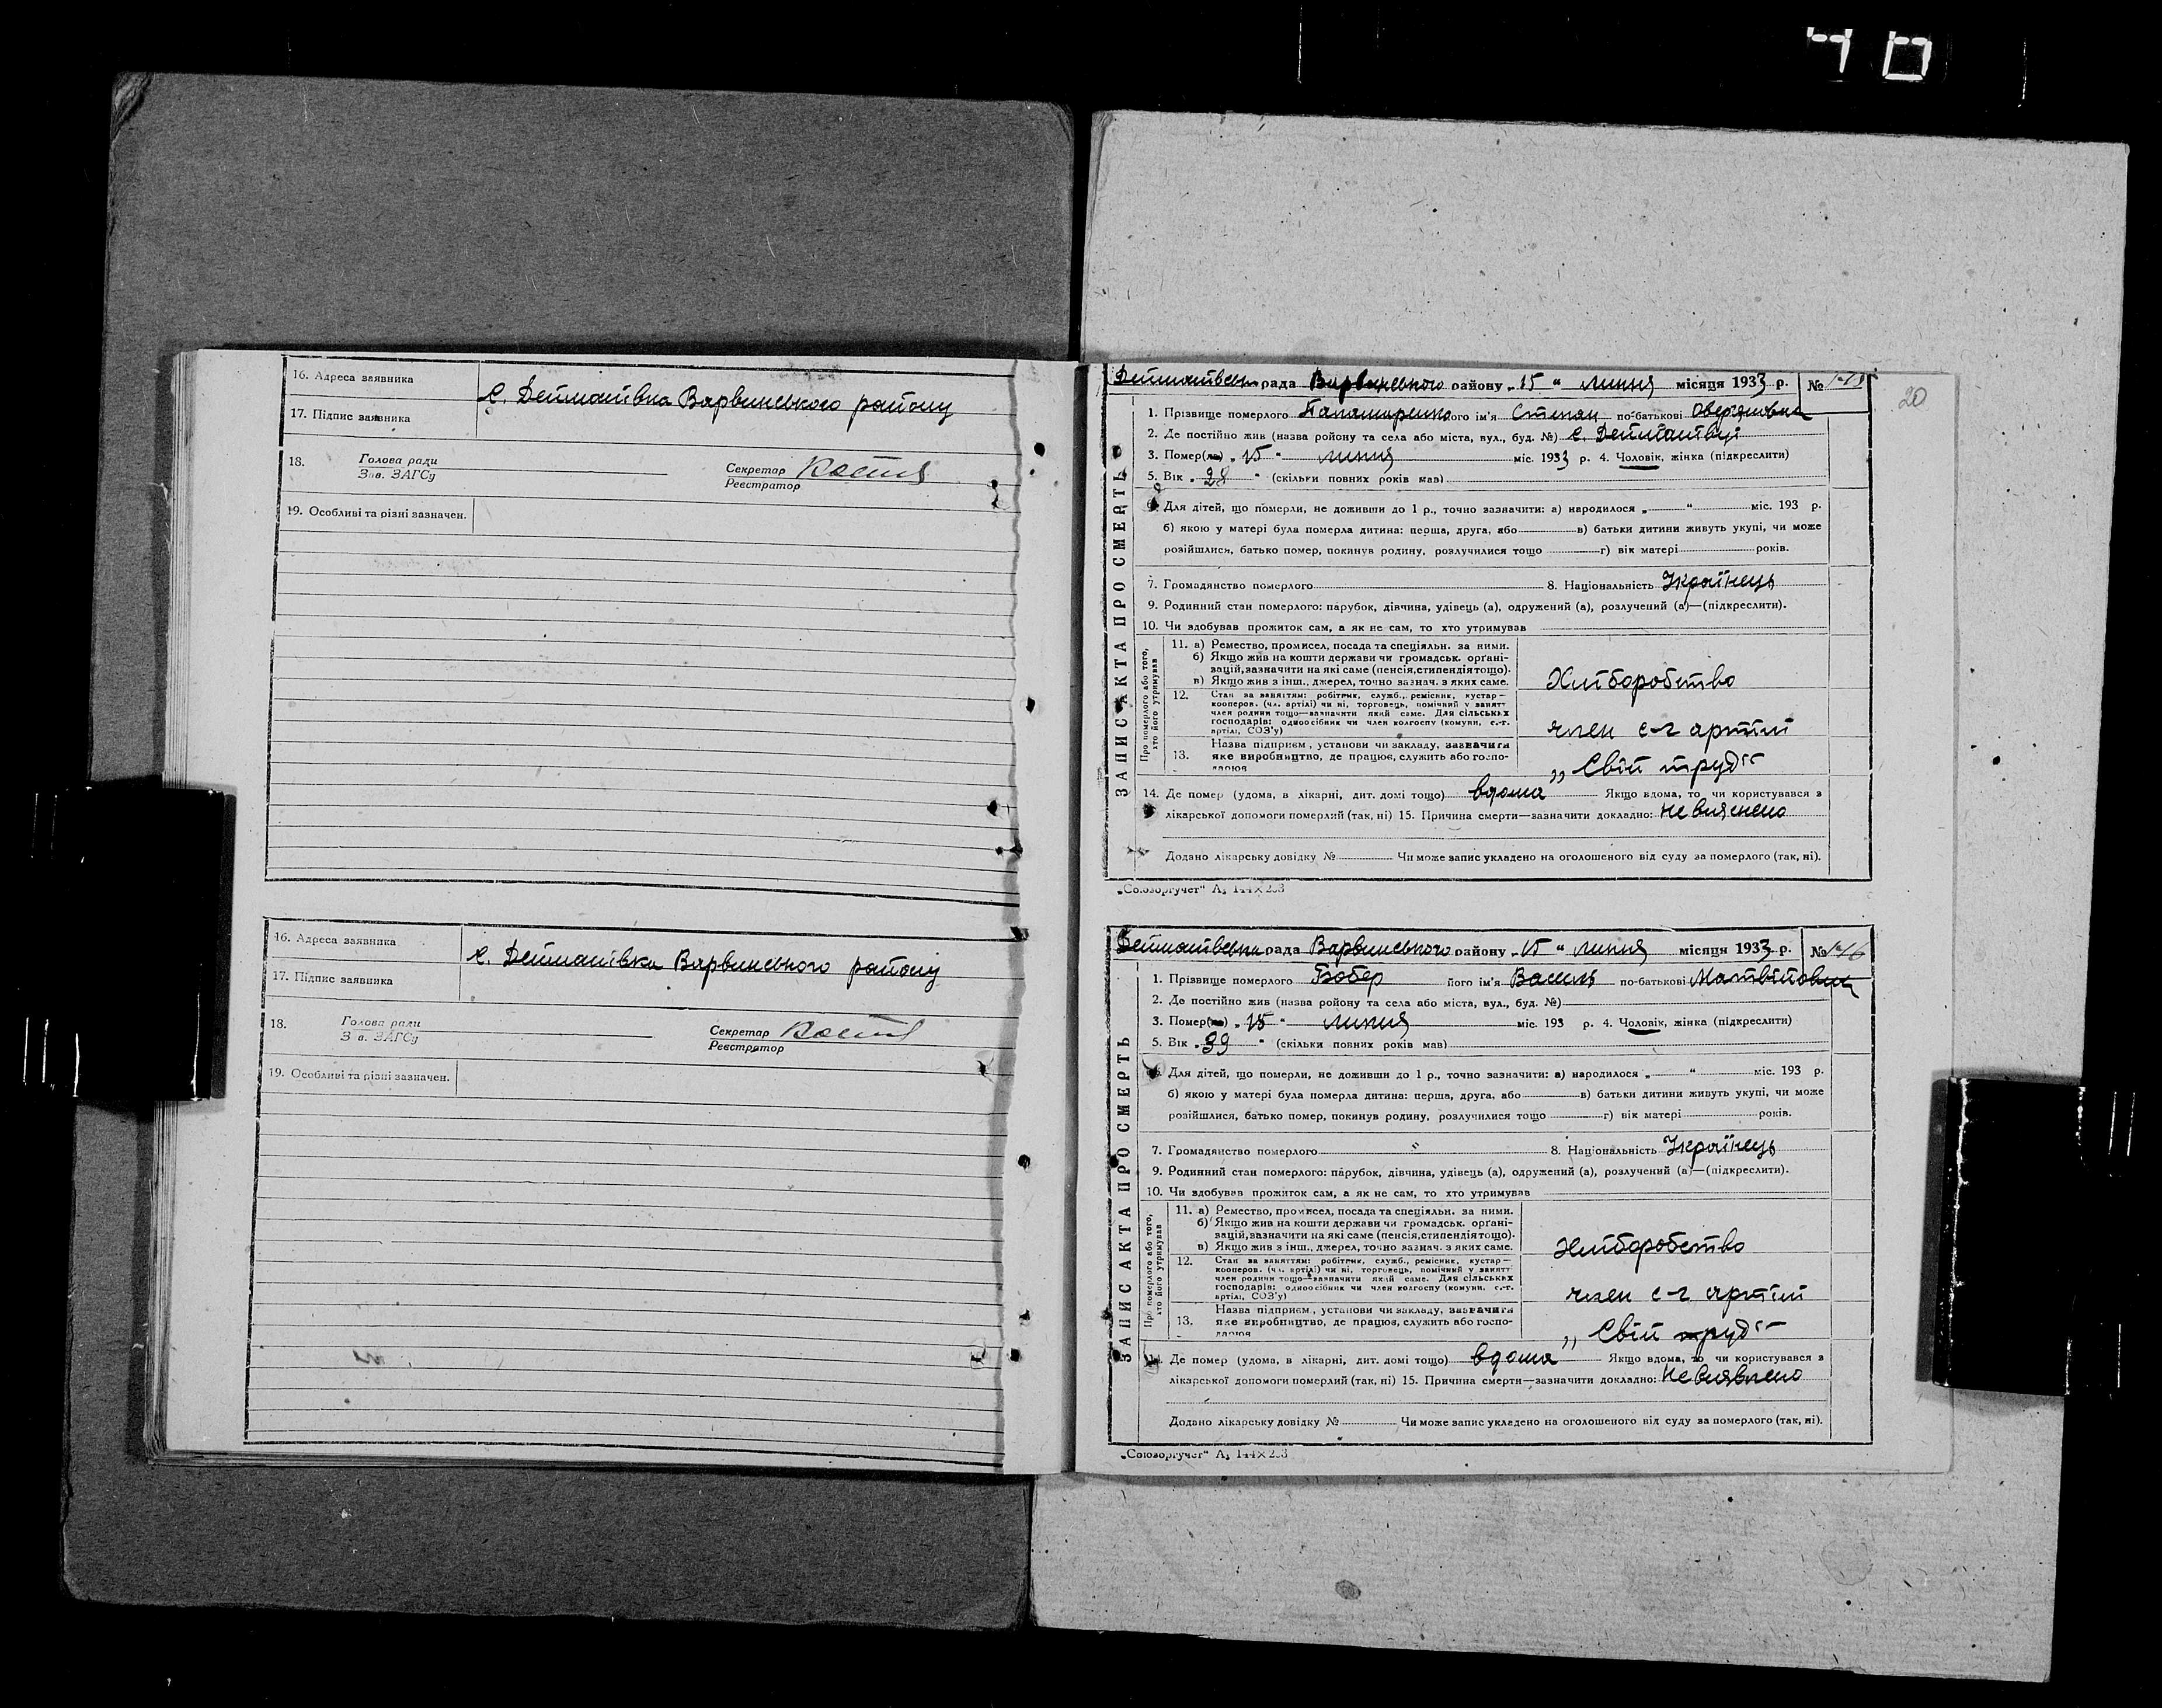 40
16. Адреса заявника
с. Дейманівка Варвинського району
17. Підпис заявника
18. Голова ради
Зав. ЗАГСу
Секретар
Реєстратор
19. Особливі та різні зазначен.
16. Адреса заявника
с. Дейманівка Варвинського району
17. Підпис заявника
18. Голова ради
Зав. ЗАГСу
Секретар
Реєстратор
19. Особливі та різні зазначен.
20
ЗАПИС АКТА ПРО СМЕРТЬ
Дейманівська рада Варвинського району „15“ липня місяця 1933 р. №
1. Прізвище померлого його ім'я Степан по-батькові
2. Де постійно жив (назва ройону та села або міста, вул., буд. №) с. Дейманівці
3. Помер(ла) „15“ липня міс. 1933 р. 4. Чоловік, жінка (підкреслити)
5. Вік „28“ (скільки повних років мав)
6. Для дітей, що померли, не доживши до 1 р., точно зазначити: а) народилося „ “ міс. 193 р.
б) якою у матері була померла дитина: перша, друга, або в) батьки дитини живуть укупі, чи може
розійшлися, батько помер, покинув родину, розлучилися тощо г) вік матері років.
7. Громадянство померлого 8. Національність Українець
9. Родинний стан померлого: парубок, дівчина, удівець (а), одружений (а), розлучений (а)—(підкреслити).
10. Чи здобував прожиток сам, а як не сам, то хто утримував
Про померлого або того, хто його утримував
11. а) Ремество, промисел, посада та спеціяльн. за ними.
б) Якщо жив на кошти держави чи громадськ. орґані-
зацій, зазначити на які саме (пенсія, стипендія тощо).
в) Якщо жив з інш., джерел, точно зазнач. з яких саме.
Хліборобство
12. Стан за заняттям: робітник, служб., ремісник, кустар—
кооперов. (чл. артілі) чи ні, торговець, помічний у занятт
член родини тощо—зазначити який саме. Для сільських
господарів: одноосібник чи член колгоспу (комуни, с.-г.
артілі, СОЗ'у)
член с-г артіли
13. Назва підприєм, установи чи закладу, зазначити
яке виробництво, де працює, служить або госпо-
дарює
„Свій труд“
14. Де помер (удома, в лікарні, дит. домі тощо) вдома Якщо вдома, то чи користувався з
лікарської допомоги померлий (так, ні) 15. Причина смерти—зазначити докладно: не вияснено
Додано лікарську довідку № Чи може запис укладено на оголошеного від суду за померлого (так, ні).
„Союзоргучет“ А₅ 144×203
ЗАПИС АКТА ПРО СМЕРТЬ
Дейманівська рада Варвинського району „15“ липня місяця 1933 р. №
1. Прізвище померлого Бобер його ім'я Василь по-батькові Матвійович
2. Де постійно жив (назва ройону та села або міста, вул., буд. №)
3. Помер(ла) „15“ липня міс. 193 р. 4. Чоловік, жінка (підкреслити)
5. Вік „39“ (скільки повних років мав)
6. Для дітей, що померли, не доживши до 1 р., точно зазначити: а) народилося „ “ міс. 193 р.
б) якою у матері була померла дитина: перша, друга, або в) батьки дитини живуть укупі, чи може
розійшлися, батько помер, покинув родину, розлучилися тощо г) вік матері років.
7. Громадянство померлого " 8. Національність Українець
9. Родинний стан померлого: парубок, дівчина, удівець (а), одружений (а), розлучений (а)—(підкреслити).
10. Чи здобував прожиток сам, а як не сам, то хто утримував
Про померлого або того, хто його утримував
11. а) Ремество, промисел, посада та спеціяльн. за ними.
б) Якщо жив на кошти держави чи громадськ. орґані-
зацій, зазначити на які саме (пенсія, стипендія тощо).
в) Якщо жив з інш., джерел, точно зазнач. з яких саме.
Хліборобство
12. Стан за заняттям: робітник, служб., ремісник, кустар—
кооперов. (чл. артілі) чи ні, торговець, помічний у занятт
член родини тощо—зазначити який саме. Для сільських
господарів: одноосібник чи член колгоспу (комуни, с.-г.
артілі, СОЗ'у)
член с-г артіли
13. Назва підприєм, установи чи закладу, зазначити
яке виробництво, де працює, служить або госпо-
дарює
„Свій труд“
14. Де помер (удома, в лікарні, дит. домі тощо) вдома Якщо вдома, то чи користувався з
лікарської допомоги померлий (так, ні) 15. Причина смерти—зазначити докладно: не виявлено
Додано лікарську довідку № Чи може запис укладено на оголошеного від суду за померлого (так, ні).
„Союзоргучет“ А₅ 144×203